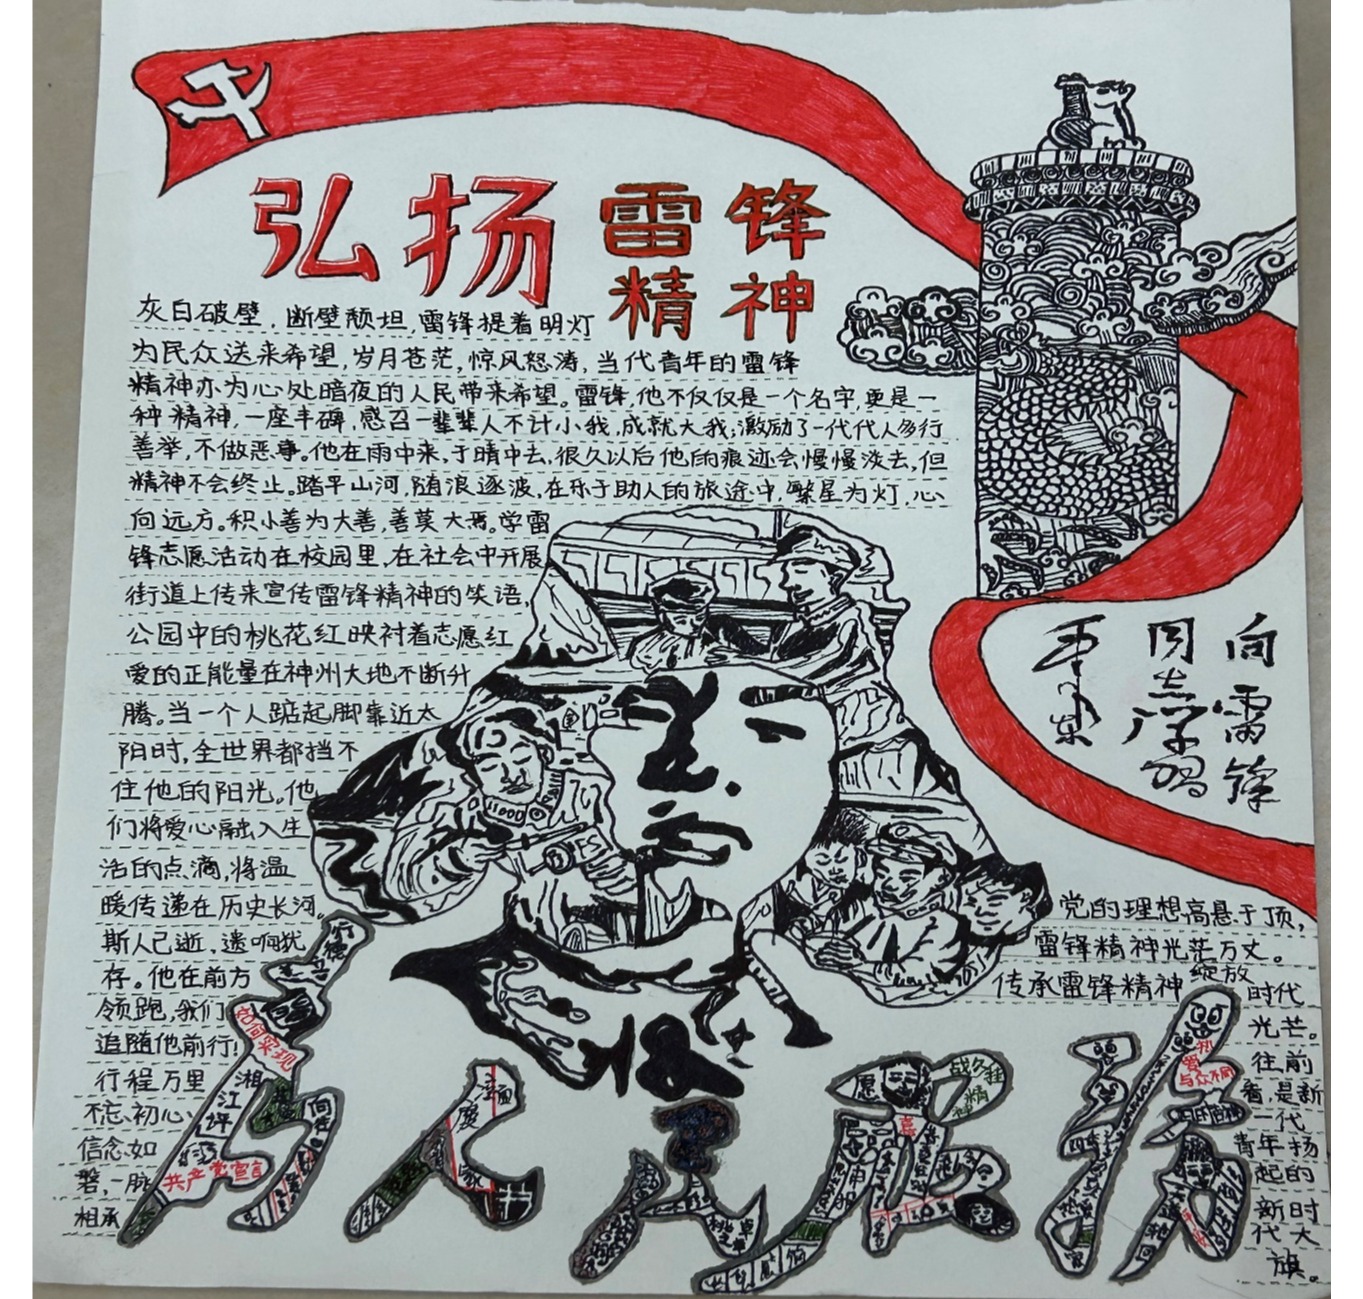 弘扬雷锋
精神
灰白破壁，断壁颓坦，雷锋提着明灯
为民众送来希望，岁月苍茫，惊风怒涛，当代青年的雷锋
精神亦为心处暗夜的人民带来希望。雷锋，他不仅仅是一个名字，更是一
种精神，一座丰碑，感召一辈辈人不计小我，成就大我；激励了一代代人多行
善举，不做恶事。他在雨中来，于晴中去，很久以后他的痕迹会慢慢淡去，但
精神不会终止。踏平山河，随浪逐波，在乐于助人的旅途中，繁星为灯，心
向远方。积小善为大善，善莫大焉。学雷
锋志愿活动在校园里，在社会中开展
街道上传来宣传雷锋精神的笑语，
公园中的桃花红映衬着志愿红
爱的正能量在神州大地不断升
腾。当一个人踮起脚靠近太
阳时，全世界都挡不
住他的阳光。他
们将爱心融入生
活的点滴，将温
暖传递在历史长河。
斯人已逝，遗响犹
存。他在前方
领跑，我们
追随他前行！
行程万里
不忘初心
信念如
磐，一脉
相承
向雷锋
同志学习
毛泽东
党的理想高悬于顶，
雷锋精神光芒万丈。
传承雷锋精神绽放时代
光芒。
往前
看，是新
一代
青年扬
起的
新时
代大
旗。
为人民服务
共产党宣言